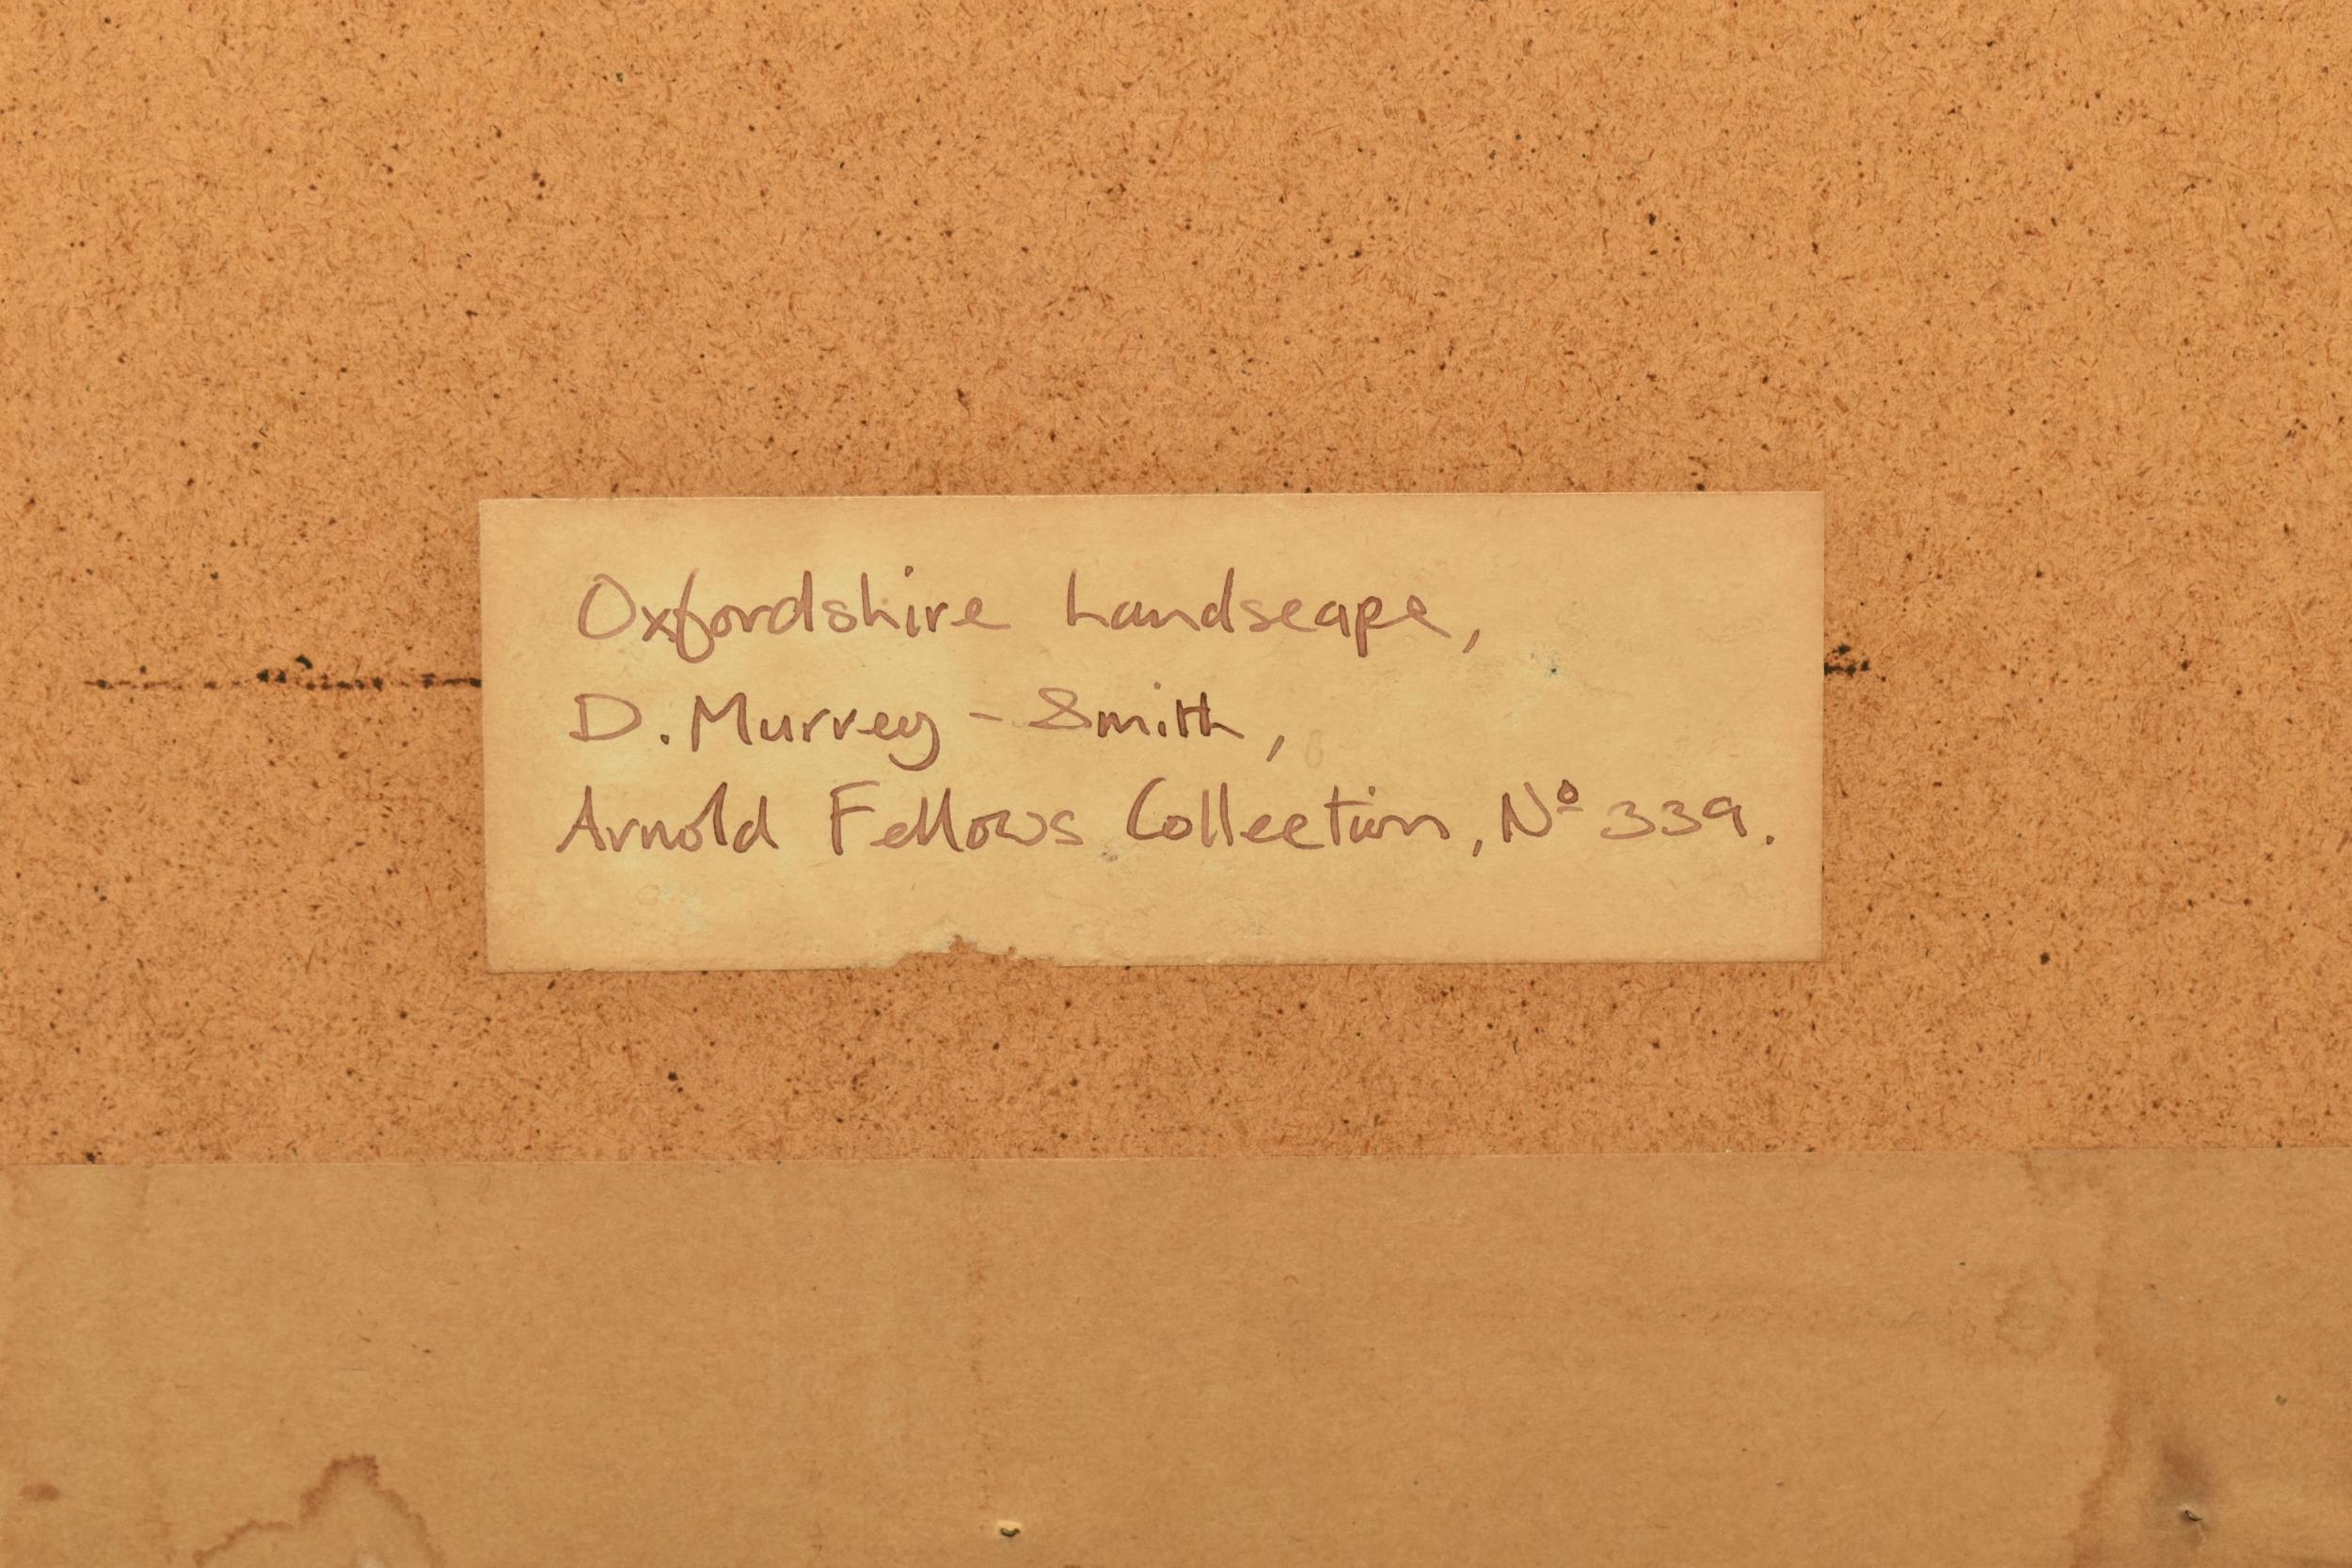 Oxfordshire Landscape,
D. Murrey - Smith,
Arnold Fellows Collection, Nº 339.